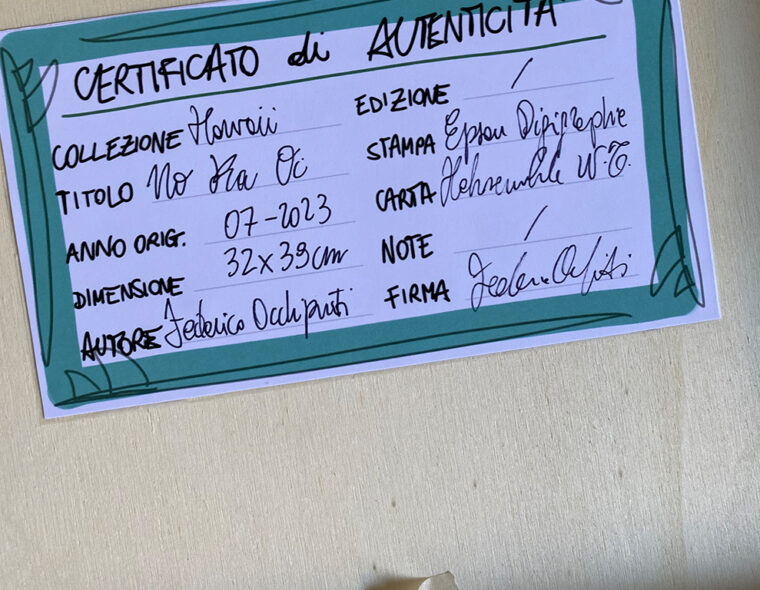 CERTIFICATO di AUTENTICITÀ
COLLEZIONE Hawaii
TITOLO No Ka Oi
ANNO ORIG. 07-2023
DIMENSIONE 32x39cm
AUTORE Federico Occhipinti
EDIZIONE /
STAMPA Epson Digigraphie
CARTA W.T.
NOTE /
FIRMA